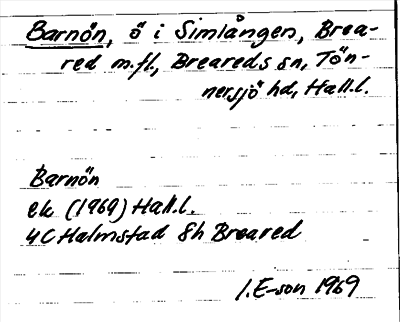 Barnön, ö i Simlången, Brea-
red m.fl., Breareds sn, Tön-
nersjö hd, Hall.l.
Barnön
ek (1969) Hall.l.
4C Halmstad 8h Breared
I.E-son 1969